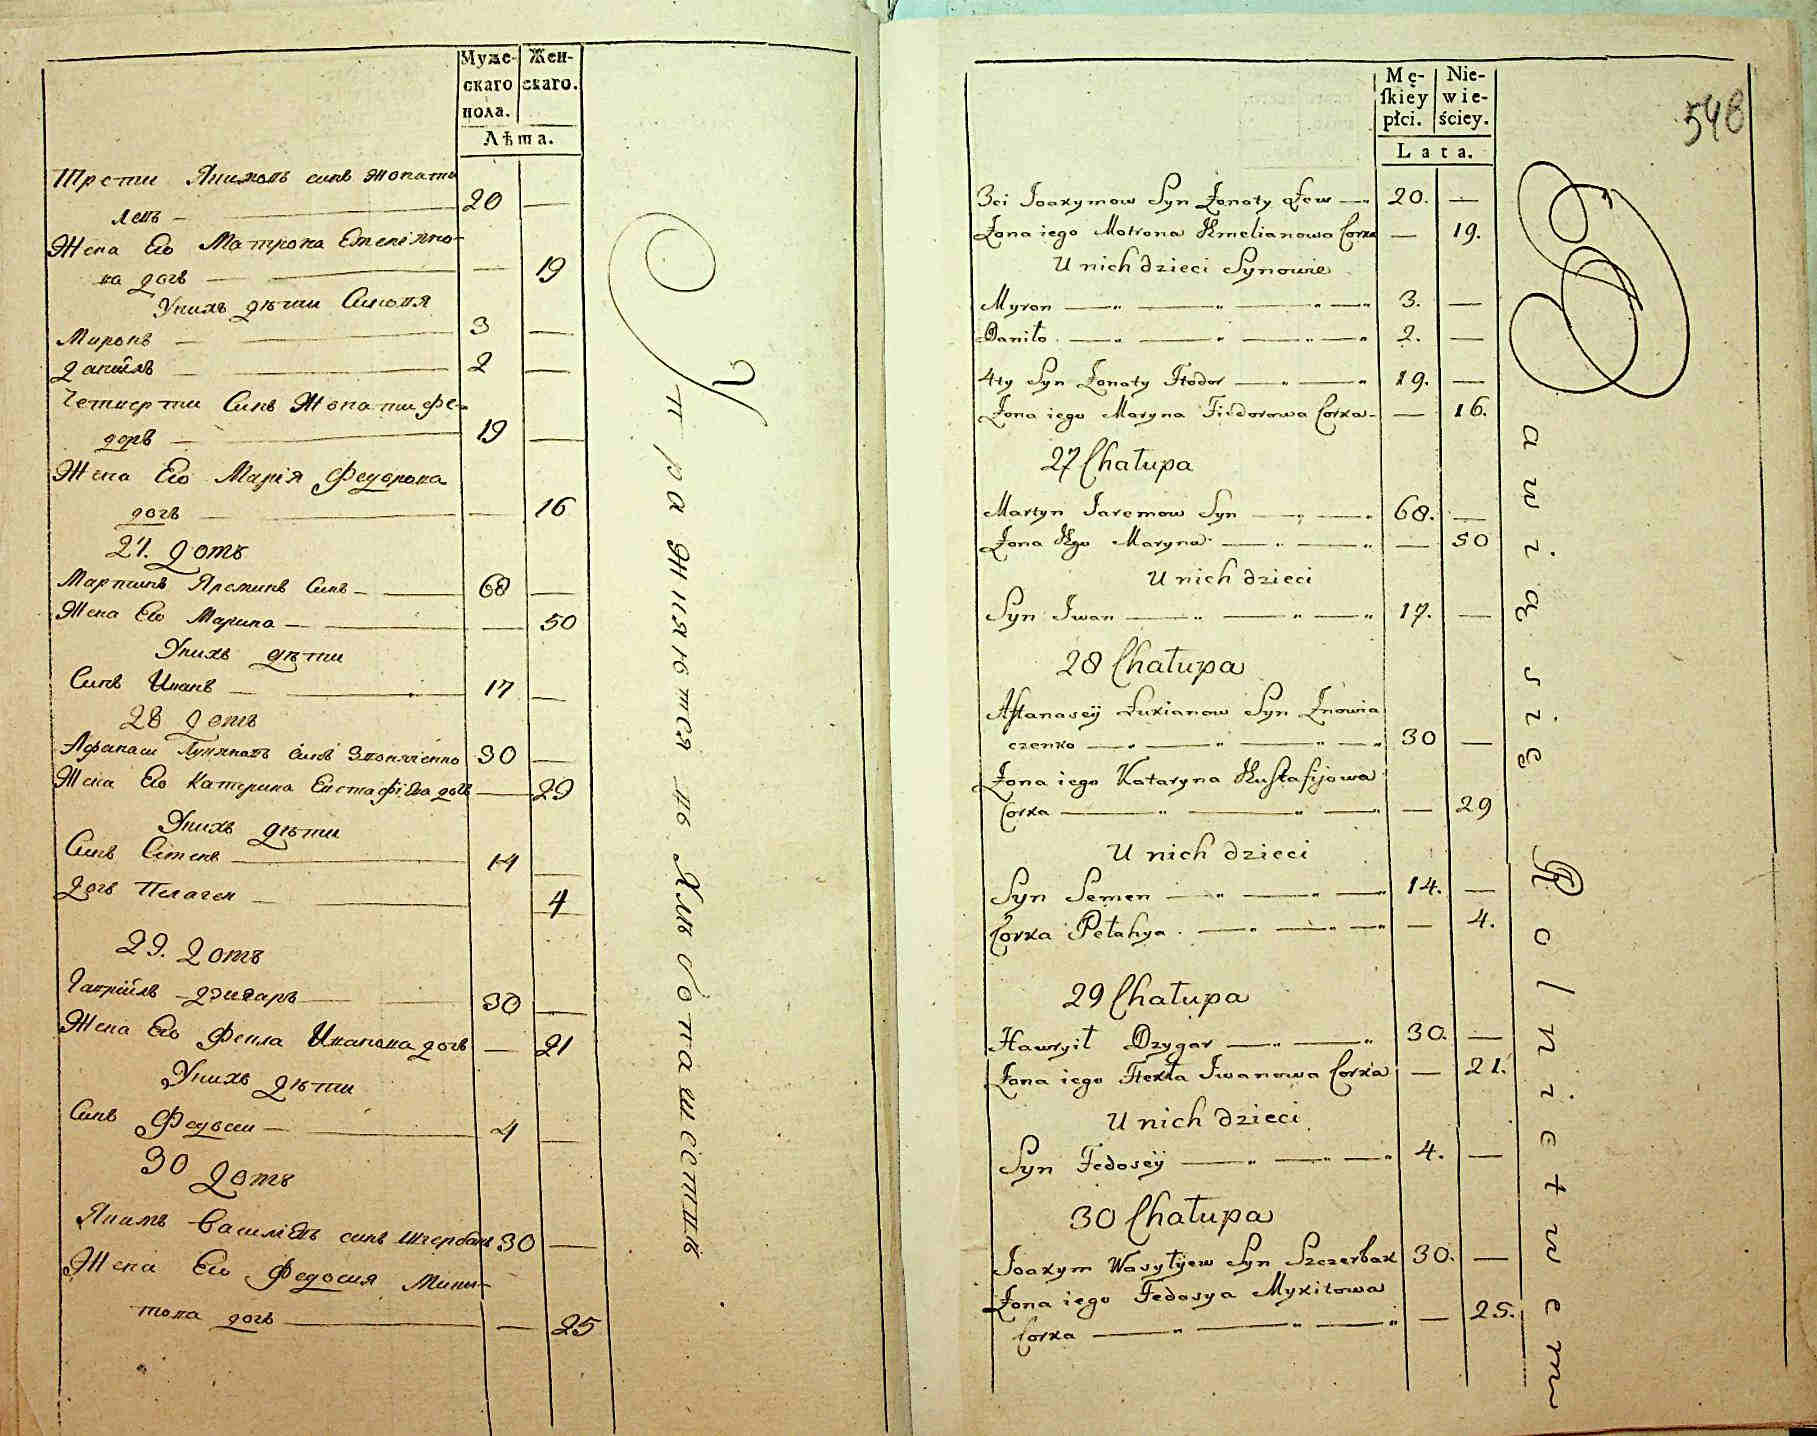 Муже-
скаго
пола.
Жен-
скаго.
Лѣта.
Трети Якимовъ синъ Жопати
левъ 20
Жена Его Матрона Емелiяно-
ва дочь 19
У нихъ дѣти Синовя
Миронъ 3
Данiилъ 2
Четверти Синъ Жопати Фе-
доръ 19
Жена Его Марiя Федорова
дочь 16
27. Домъ
Мартинъ Яреминъ Синъ 68
Жена Его Марина 50
У нихъ дѣти
Синъ Иванъ 17
28 Домъ
Афанаси Лукяновъ синъ 30
Жена Его Катерина Евстафiева дочь 29
У нихъ дѣти
Синъ Семенъ 14
Дочь Пелагея 4
29. Домъ
Гаврiилъ Дзигаръ 30
Жена Его Фекла Иванова дочь 21
У нихъ дѣти
Синъ Федосеи 4
30 Домъ
Якимъ Василiевъ синъ Щербакъ 30
Жена Его Федосия Мики-
това дочь 25
Упражняются въ Хлѣбопашествѣ
Mę-
ſkiey
płci.
Nie-
wie-
ściey.
Lata.
548
3ci Joakymow Syn Żonaty Lew 20.
Żona iego Motrona Emelianowa Corka 19.
U nich dzieci Synowie
Myron 3.
Daniło 2.
4ty Syn Żonaty Fiodor 19.
Żona iego Maryna Fiedorowa Corka 16.
27 Chałupa
Martyn Jaremow Syn 68.
Żona Ego Maryna 50
U nich dzieci
Syn Iwan 17.
28 Chałupa
Aftanaseÿ Łukianow Syn Znowia
czenko 30
Żona iego Kataryna Eustafijowa
Corka 29
U nich dzieci
Syn Semen 14.
Corka Pełahya 4.
29 Chałupa
Hawryił Dzygar 30.
Żona iego Fiekła Iwanowa Corka 21.
U nich dzieci
Syn Fedoseÿ 4.
30 Chałupa
Joakym Wasyłyiew Syn Szczerbak 30.
Żona iego Fedosya Mykitowa
Corka 25.
Bawią się Rolnictwem